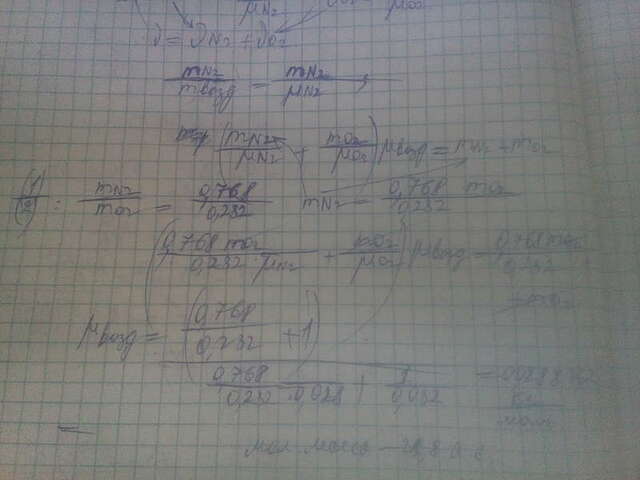 μN2
ν = νN2 + νO2
mN2/mвозд = mN2/μN2
(mN2/μN2 + mO2/μO2) μвозд = mN2 + mO2
(1)/(2) : mN2/mO2 = 0,768/0,232 mN2 = 0,768/0,232 mO2
(0,768 mO2/0,232 · μN2 + mO2/μO2) μвозд = 0,768 mO2/0,232
+ mO2
μвозд = (0,768/0,232 + 1)
0,768/0,232 · 0,028 + 1/0,032 =
кг/моль
мол масса